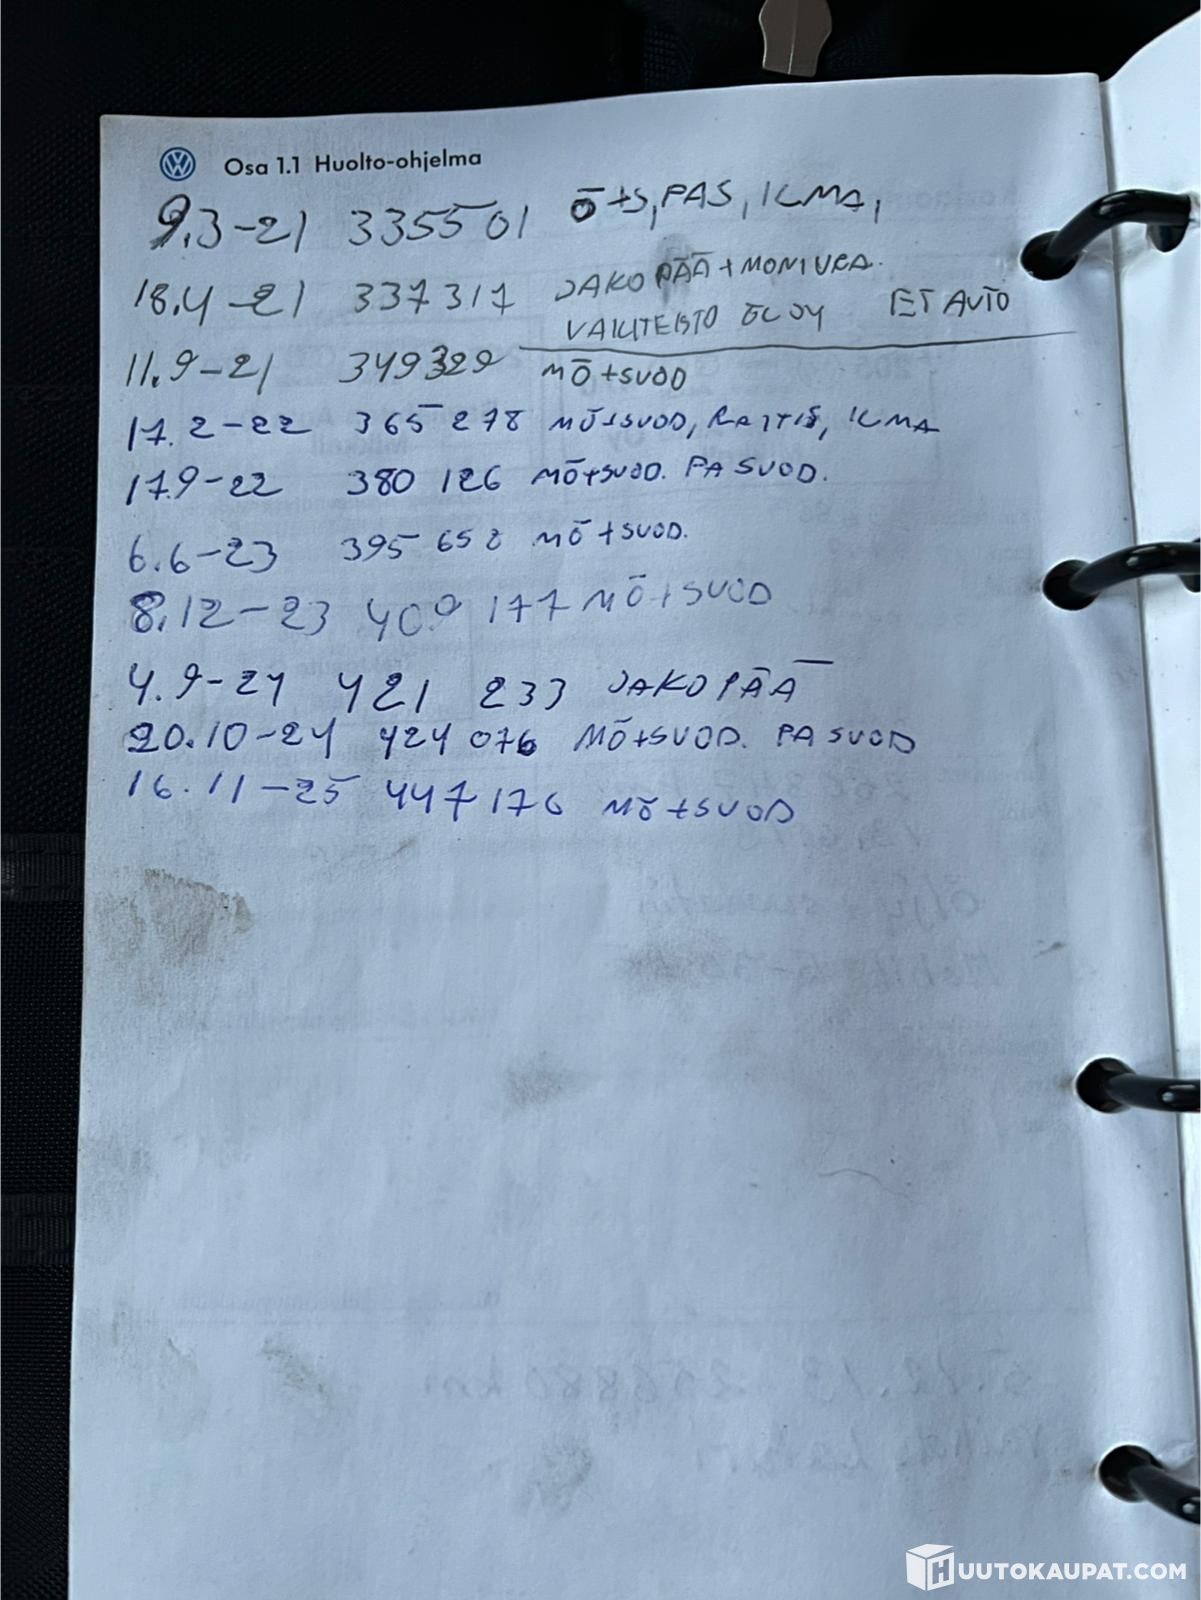 Osa 1.1 Huolto-ohjelma
9.3-21 335501 Ö+S, PAS, ILMA,
18.4-21 337317 JAKOPÄÄ+MONIURA.
VAIHTEISTO ÖLJY ET AUTO
11.9-21 349329 MÖ+SUOD
17.2-22 365 278 MÖ+SUOD, RAITIS, ILMA
17.9-22 380 126 MÖ+SUOD. PA SUOD.
6.6-23 395 652 MÖ+SUOD.
8.12-23 409 177 MÖ+SUOD
4.9-24 421 233 JAKOPÄÄ
20.10-24 424 076 MÖ+SUOD. PA SUOD
16.11-25 447 176 MÖ+SUOD
HUUTOKAUPAT.COM